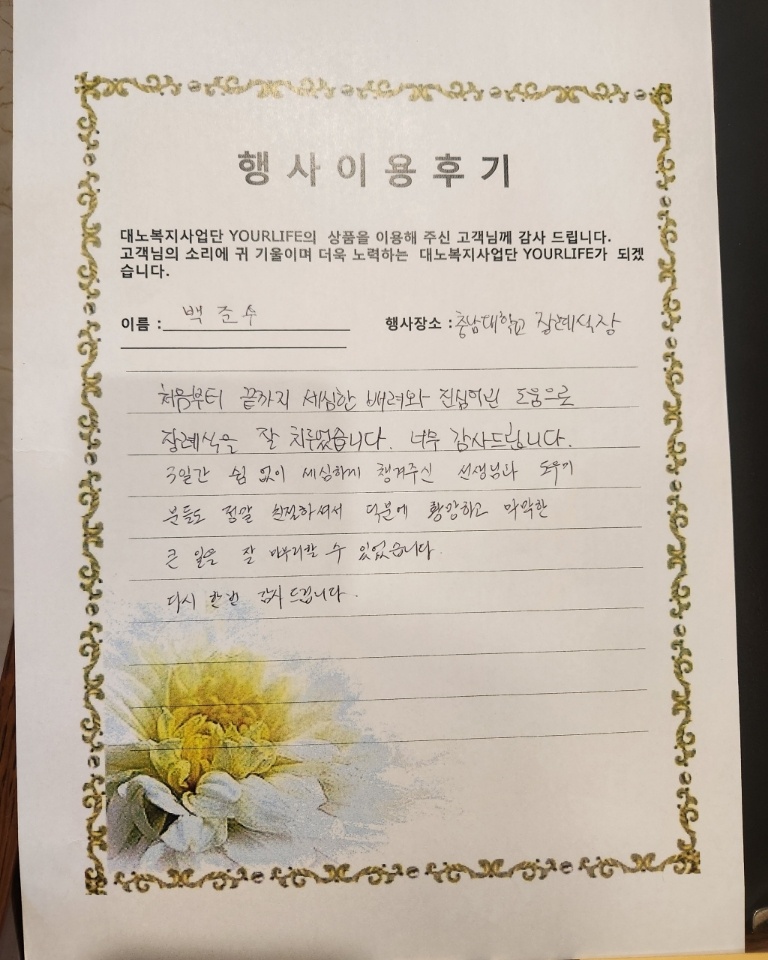 행사이용후기
대노복지사업단 YOURLIFE의 상품을 이용해 주신 고객님께 감사 드립니다.
고객님의 소리에 귀 기울이며 더욱 노력하는 대노복지사업단 YOURLIFE가 되겠
습니다.
이름 : 백준수 행사장소 : 충남대학교 장례식장
처음부터 끝까지 세심한 배려와 진심어린 도움으로
장례식을 잘 치루었습니다. 너무 감사드립니다.
3일간 쉼 없이 세심하게 챙겨주신 선생님과 도우미
분들도 정말 친절하셔서 덕분에 황망하고 막막한
큰 일을 잘 마무리할 수 있었습니다.
다시 한번 감사 드립니다.